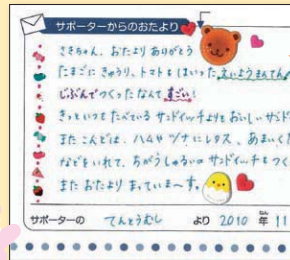 サポーターからのおたより
さきちゃん、おたより ありがとう
たまごに きゅうり、トマトもはいった えいようまんてん
じぶんでつくったなんて すごい!
きっといつもたべている サンドイッチよりも おいしいサンド
またこんどは、ハムや ツナにレタス、あまい
などをいれて、ちがうしゅるいの サンドイッチもつく
また おたより まっていま〜す。
サポーターの てんとうむし より 2010 年 11